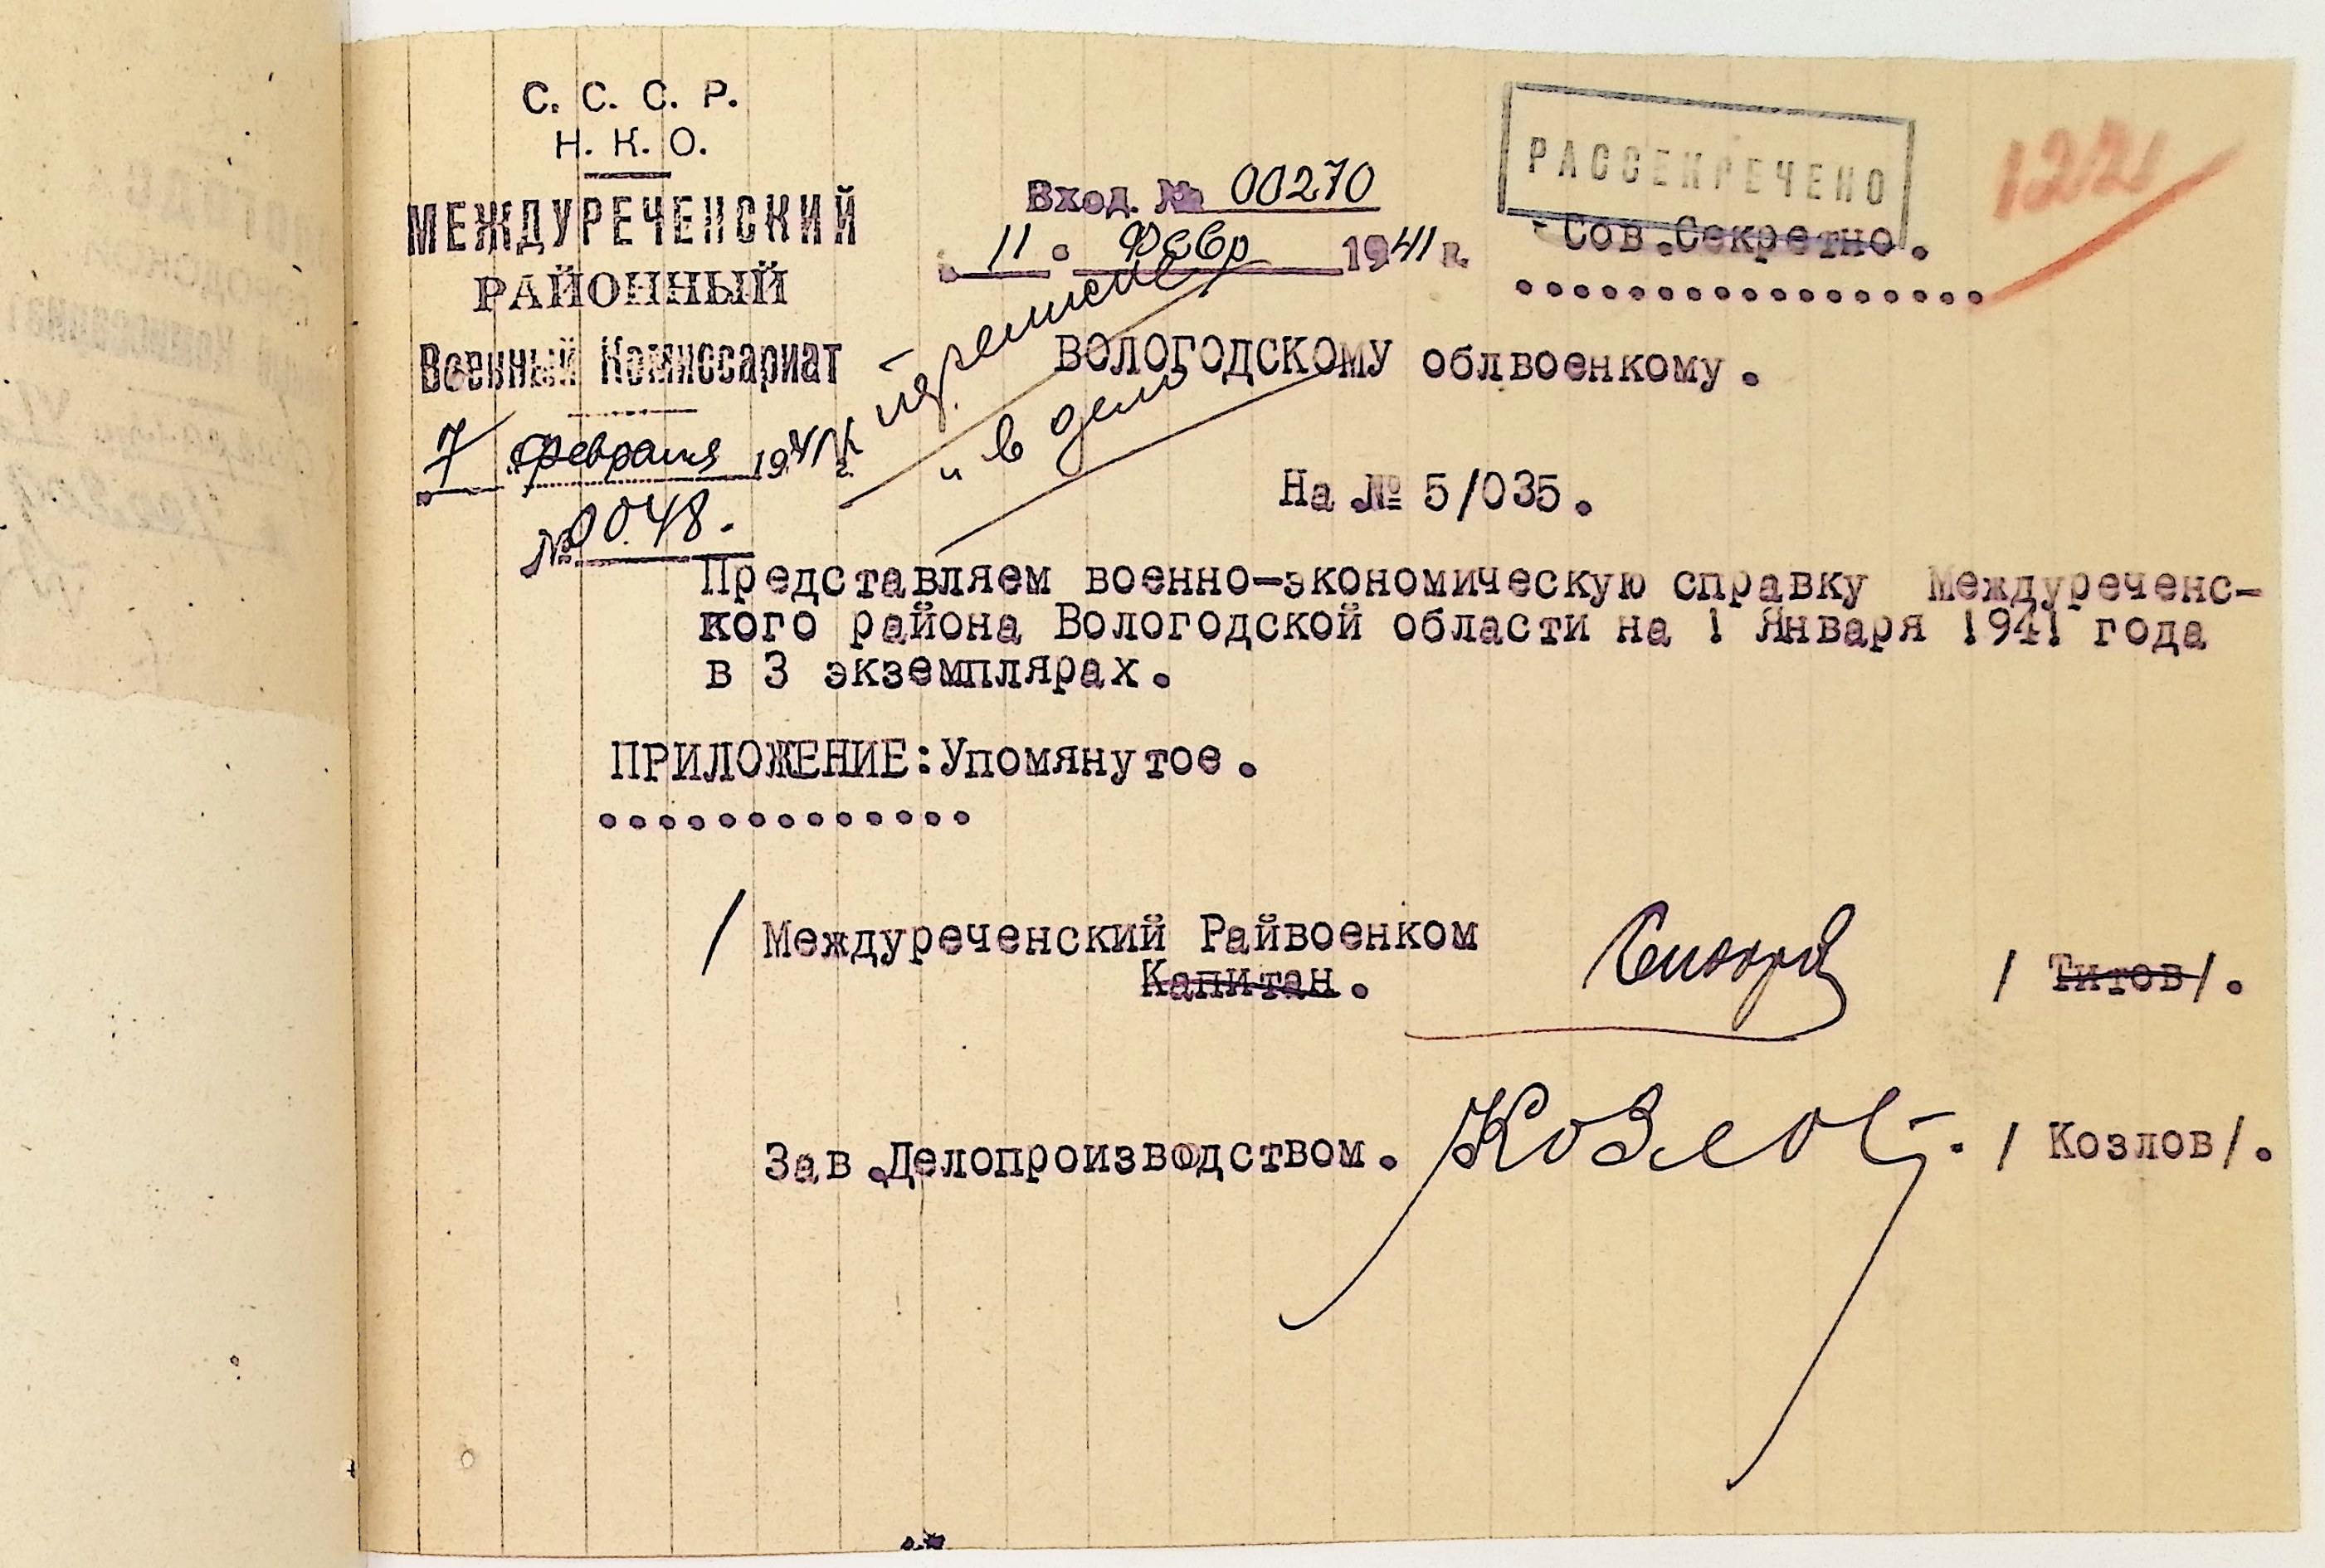 С. С. С. Р.
Н. К. О.
МЕЖДУРЕЧЕНСКИЙ
РАЙОННЫЙ
Военный Комиссариат
7 февраля 1941 г.
№ 0048.
Вход. № 00270
11 Февр 1941 г.
РАССЕКРЕЧЕНО
Сов.Секретно.
122
и в дело
ВОЛОГОДСКОМУ облвоенкому.
На № 5/035.
Представляем военно-экономическую справку Междуреченс-
кого района Вологодской области на 1 Января 1941 года
в 3 экземплярах.
ПРИЛОЖЕНИЕ:Упомянутое.
/ Междуреченский Райвоенком / Титов/.
Капитан.
Зав.Делопроизводством. Козлов / Козлов/.